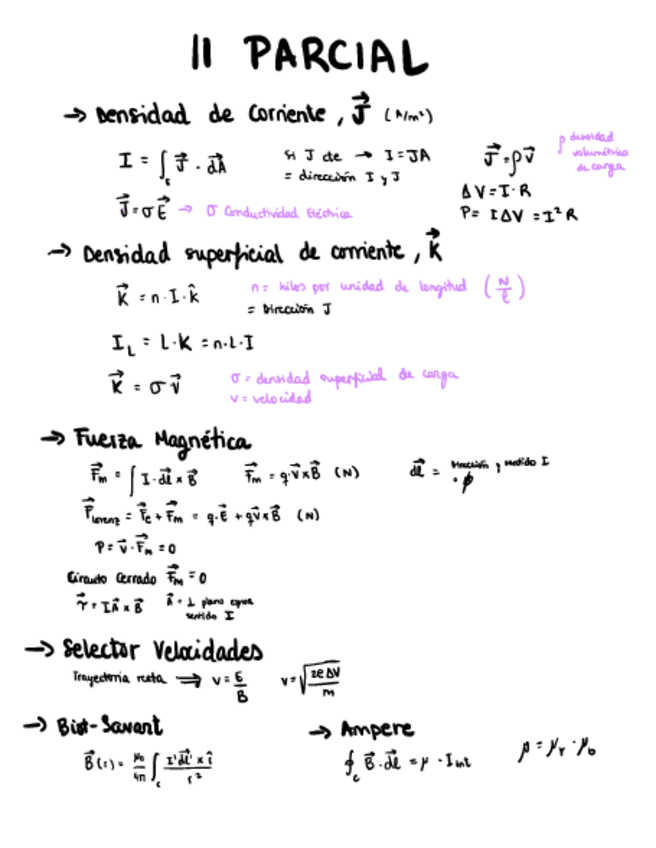 II PARCIAL
→ Densidad de Corriente, J⃗ (A/m²)
I = ∫_c J⃗ · dA⃗ si J cte → I = JA J⃗ = ρV⃗ ρ densidad volumétrica de carga
= dirección I y J
J⃗ = σE⃗ → σ Conductividad Eléctrica ΔV = I · R
P = IΔV = I²R
→ Densidad superficial de corriente, K⃗
K⃗ = n · I · k̂ n = hilos por unidad de longitud (N/ℓ)
= Dirección J
I_L = L · K = n · L · I
K⃗ = σV⃗ σ = densidad superficial de carga
v = velocidad
→ Fuerza Magnética
F⃗m = ∫ I · dl⃗ × B⃗ F⃗m = q · V⃗ × B⃗ (N) dl⃗ = Dirección y sentido I
F⃗lorenz = F⃗e + F⃗m = q · E⃗ + qV⃗ × B⃗ (N)
P = V⃗ · F⃗m = 0
Circuito Cerrado F⃗m = 0
τ⃗ = IA⃗ × B⃗ A⃗ = ⊥ plano espira
sentido I
→ Selector Velocidades
Trayectoria recta ⟹ v = E/B v = √(2eΔV/m)
→ Biot-Savart → Ampere
B⃗(r) = μ₀/4π ∫_c I'dl⃗' × r̂/r² ∮_c B⃗ · dl⃗ = μ · Iint μ = μr · μ₀